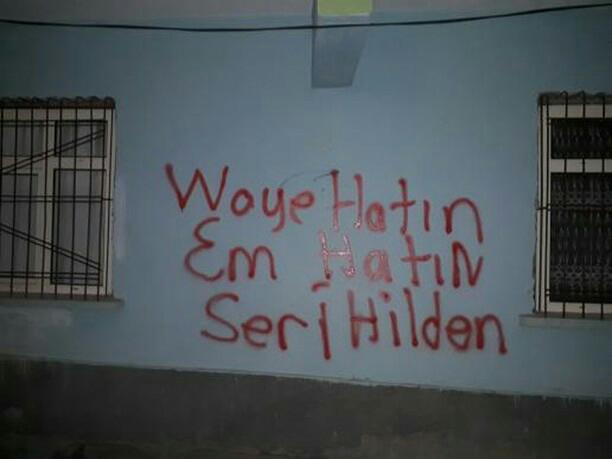 Waye Hatın
Em Hatın
Serî Hilden